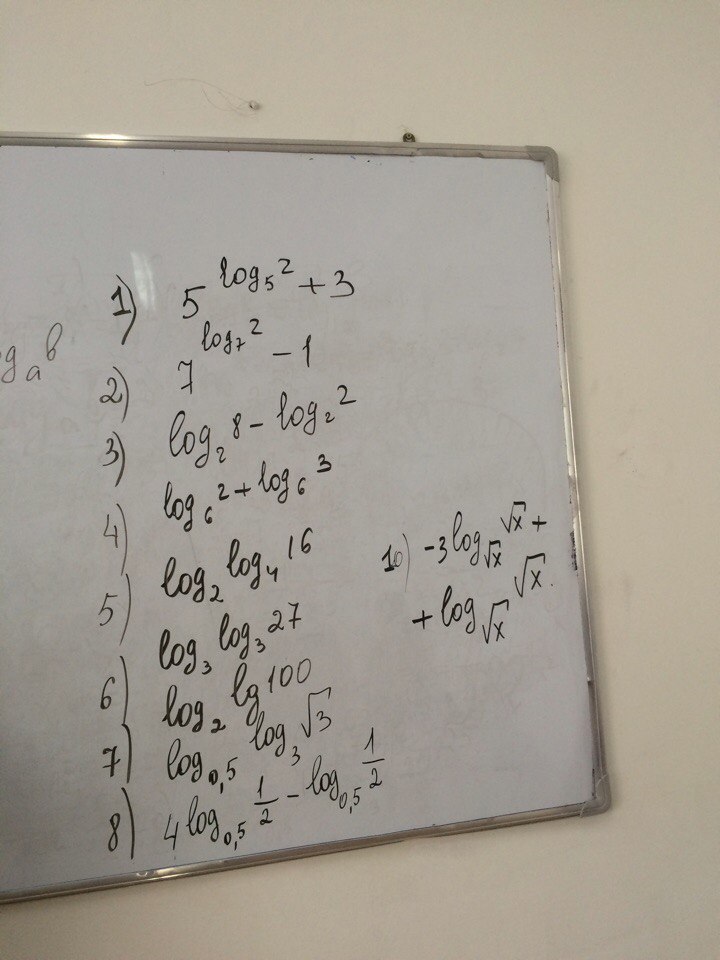 1) 5^{log_5 2} + 3
og_a b
2) 7^{log_7 2} - 1
3) log_2 8 - log_2 2
4) log_6 2 + log_6 3
5) log_2 log_4 16
log_3 log_3 27
6) log_2 lg 100
7) log_{0,5} log_3 √3
8) 4 log_{0,5} 1/2 - log_{0,5} 1/2
10) -3 log_{√x} √x +
+ log_{√x} √x.